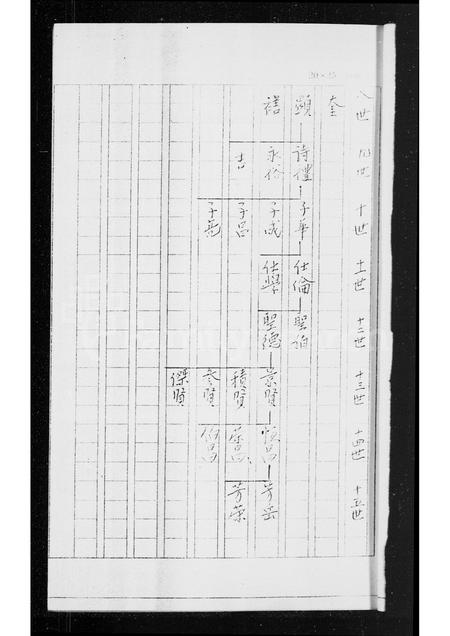 八世 九世 十世 十一世 十二世 十三世 十四世 十五世
奎
顯 詩禮 子華 仕倫 聖伯
禧 永俗 子成 仕學 聖德 景賢 恆昌 芳岳
吉 子昌 積賢 榮昌 芳榮
子亮 參賢 伯昌
傑賢